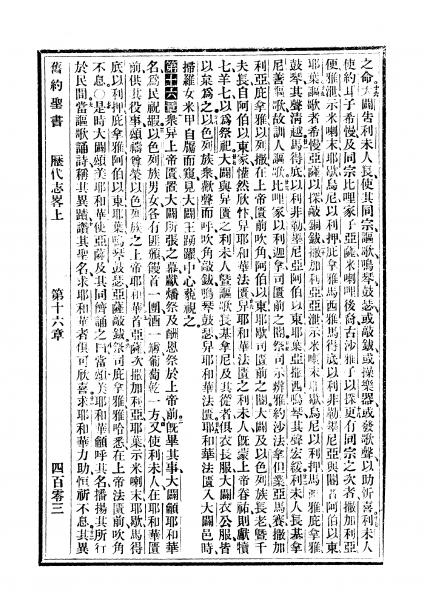 之命大闢告利未人長使其同宗謳歌鳴琴鼓瑟或敲鈸或操樂器或發歌聲以助忻喜利未人
使約耳子希慢及同宗比哩家子亞薩米喇哩後裔古沙雅子以探更有同宗之次者撒加利亞
便雅泄示米喇末耶歇烏尼以利押庇拿雅馬西雅馬得底以利非勒墨尼亞與閽者阿伯以東
耶葉謳歌者希慢亞薩以探敲銅鈸撒加利亞亞泄示米喇末耶歇烏尼以利押馬西雅庇拿雅
鼓琴其聲清越馬得底以利非勒墨尼亞阿伯以東耶葉亞撒西鳴琴其聲宏緩利未人長基拿
尼善謳歌故訓人謳歌比哩家以利迦拿司匱前之閽祭司示雅約沙法拿但業亞馬賽撒加
利亞庇拿雅以列撒在上帝匱前吹角阿伯以東耶歇司匱前之閽大闢及以色列族長老暨千
夫長自阿伯以東家懽然欣忭舁耶和華法匱舁耶和華法匱之利未人既蒙上帝眷祐則獻犢
七羊七以為祭祀大闢與舁匱之利未人暨謳歌長基拿尼及其從者俱衣長服大闢衣公服皆
以枲為之以色列族衆歡聲而呼吹角敲鈸鳴琴鼓瑟舁耶和華法匱耶和華法匱入大闢邑時
掃羅女米甲自牖而窺見大闢王踴躍中心藐視之
第十六章衆舁上帝匱置大闢所張之幕獻燔祭及酬恩祭於上帝前既畢其事大闢籲耶和華
名為民祝嘏以色列族男女各有匪頒饅首一團酒一壺葡萄乾一方又使利未人在耶和華匱
前供其役事頌禱尊榮以色列族之上帝耶和華首亞薩次撒加利亞耶葉示米喇末耶歇馬得
底以利押庇拿雅阿伯以東耶葉鳴琴鼓瑟亞薩敲鈸祭司庇拿雅雅哈悉在上帝法匱前吹角
不息○是時大闢頌美耶和華使亞薩及其同儕誦之曰當頌美耶和華籲呼其名播揚其所行
於民間當謳歌誦詩稱其異蹟讚其聖名求耶和華者俱可欣喜求耶和華力助恒祈不息其異
舊約聖書 歷代志畧上 第十六章 四百零三